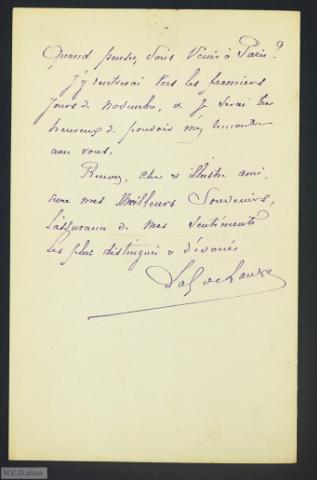 Quand pensez vous venir à Paris ?
J'y rentrerai vers les premiers
jours de Novembre, & je serai très
heureux de pouvoir m'y rencontrer
avec vous.
Recevez, cher & illustre ami,
avec mes Meilleurs Souvenirs,
l'assurance de mes sentiments
les plus distingués & dévoués